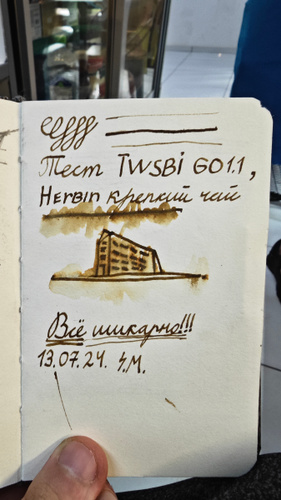 Тест TWSBI GO 1.1,
Herbin крепкий чай
Всё шикарно!!!
13.07.24. S.M.